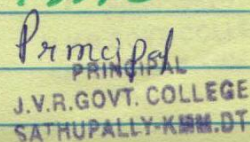 Principal
PRINCIPAL
J.V.R.GOVT. COLLEGE
SATHUPALLY-KMM.DT